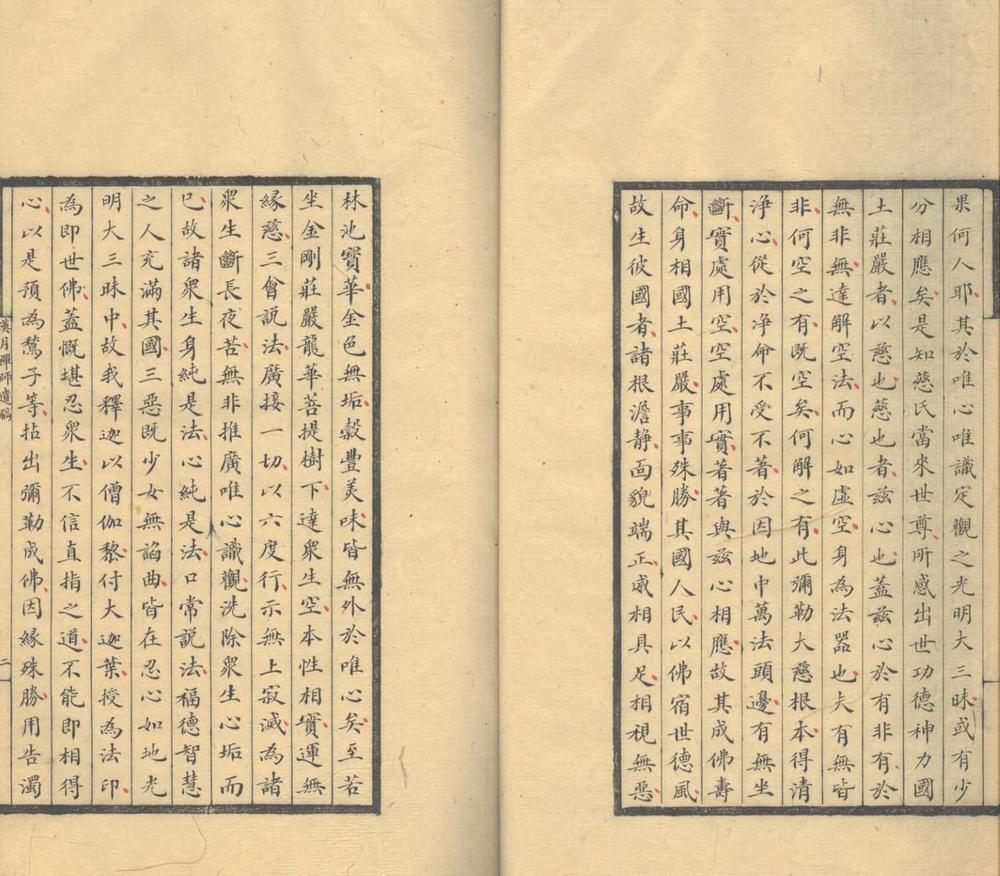 果何人耶其於唯心唯識定觀之光明大三昧或有少
分相應矣是知慈氏當來世尊所感出世功德神力國
土莊嚴者以慈也慈也者茲心也蓋茲心於有非有於
無非無達解空法而心如虛空身為法器也夫有無皆
非何空之有既空矣何解之有此彌勒大慈根本得清
淨心從於淨命不受不著於因地中萬法頭邊有無坐
斷實處用空空處用實著著與茲心相應故其成佛壽
命身相國土莊嚴事事殊勝其國人民以佛宿世德風
故生彼國者諸根澹静面貌端正威相具足相視無惡
林池寳華金色無垢穀豐美味皆無外於唯心矣至若
坐金剛莊嚴龍華菩提樹下達衆生空本性相實運無
緣慈三會説法廣接一切以六度行示無上寂滅為諸
衆生斷長夜苦無非推廣唯心識觀洗除衆生心垢而
已故諸衆生身純是法心純是法口常説法福德智慧
之人充滿其國三惡既少女無諂曲皆在忍心如地光
明大三昧中故我釋迦以僧伽黎付大迦葉授為法印
為即世佛蓋慨堪忍衆生不信直指之道不能即相得
心以是預為鶖子等拈出彌勒成佛因緣殊勝用告濁
漢月禪師遺稿
二